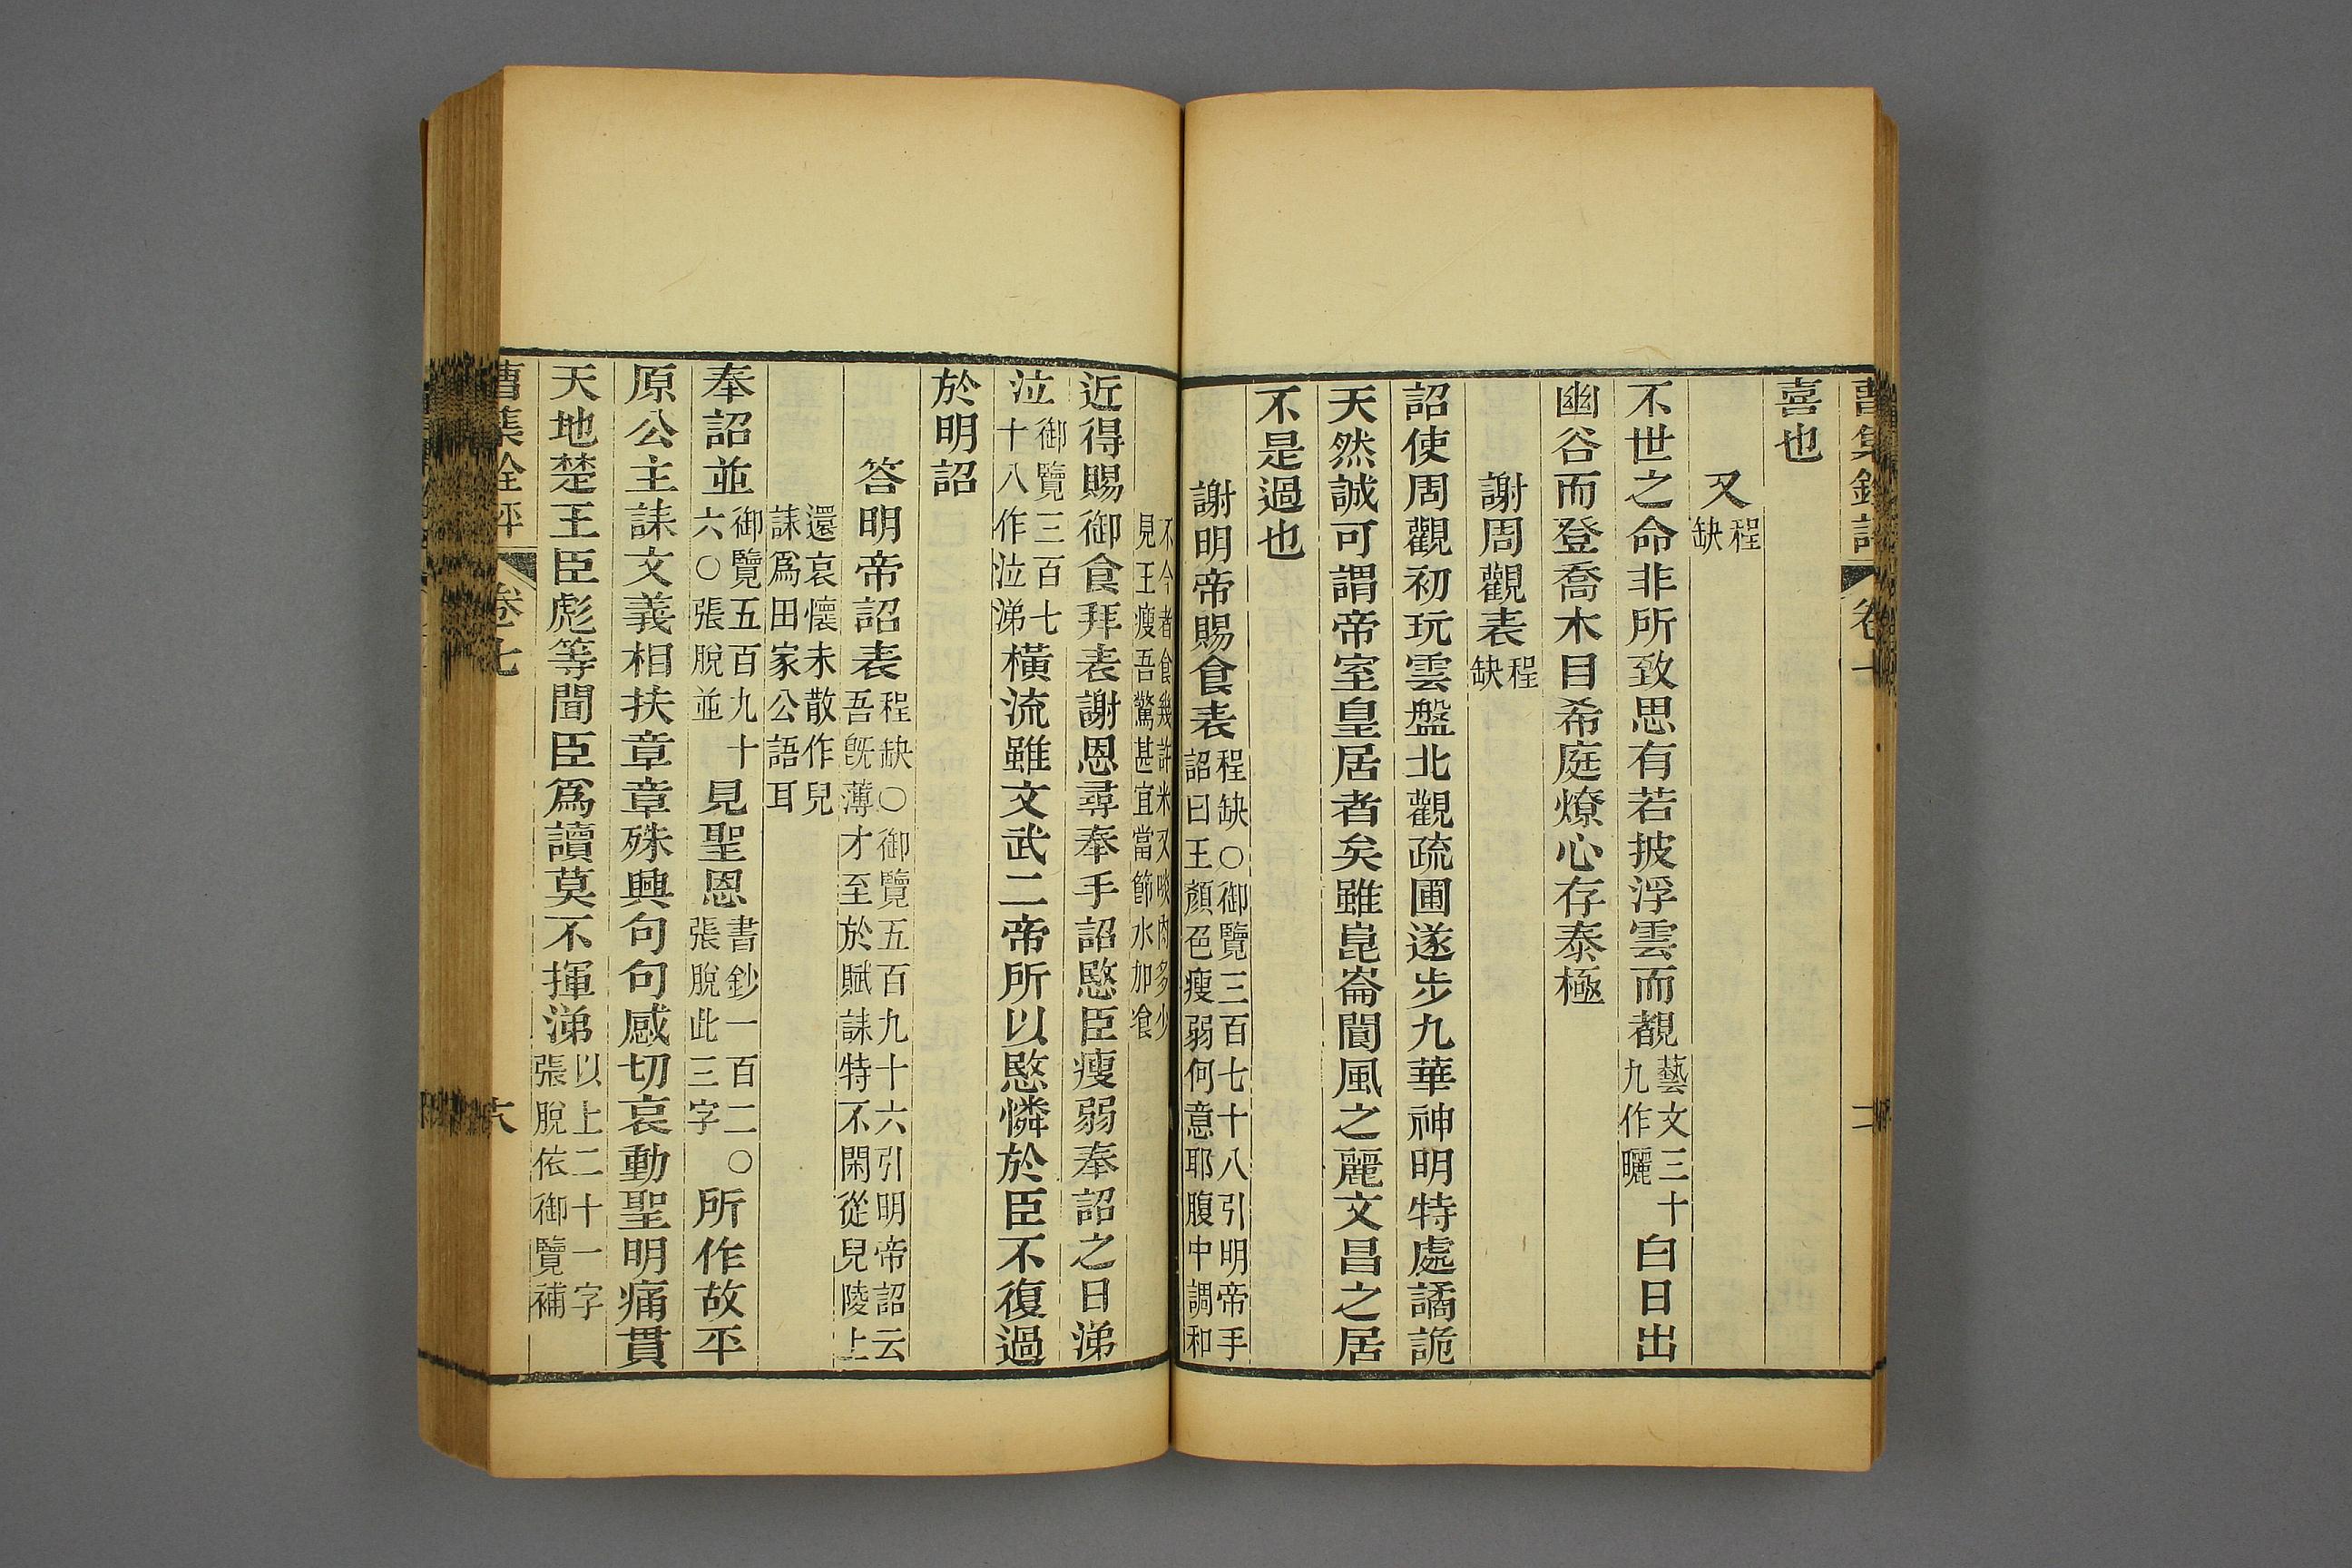 喜也
又程缺
不世之命非所致思有若披浮雲而覩藝文三十九作曬白日出
幽谷而登喬木目希庭燎心存泰極
謝周觀表程缺
詔使周觀初玩雲盤北觀疏圃遂步九華神明特處譎詭
天然誠可謂帝室皇居者矣雖崑崙閬風之麗文昌之居
不是過也
謝明帝賜食表程缺○御覽三百七十八引明帝手詔曰王顏色瘦弱何意耶腹中調和
不今者食幾許米又啖肉多少見王瘦吾驚甚宜當節水加飡
近得賜御食拜表謝恩尋奉手詔愍臣瘦弱奉詔之日涕
泣御覽三百七十八作泣涕橫流雖文武二帝所以愍憐於臣不復過
於明詔
答明帝詔表程缺○御覽五百九十六引明帝詔云吾旣薄才至於賦誄特不閑從兒陵上
還哀懷未散作兒誄爲田家公語耳
奉詔並御覽五百九十六○張脫並見聖恩書鈔一百二○張脫此三字所作故平
原公主誄文義相扶章章殊興句句感切哀動聖明痛貫
天地楚王臣彪等聞臣爲讀莫不揮涕以上二十一字張脫依御覽補
曹集銓評
卷七